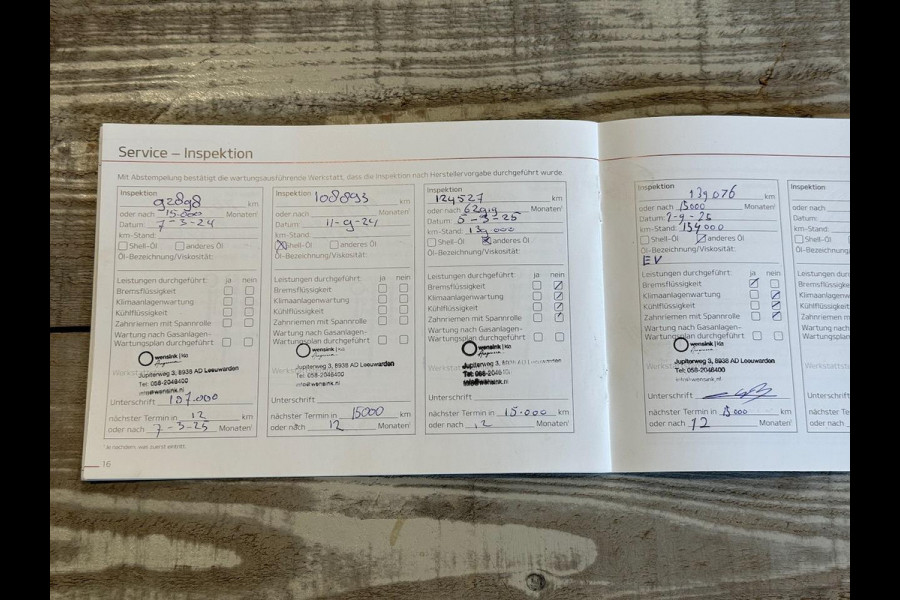 Service – Inspektion
Mit Abstempelung bestätigt die wartungsausführende Werkstatt, dass die Inspektion nach Herstellervorgabe durchgeführt wurde.
Inspektion
92898 km
oder nach 15.000 Monaten¹
Datum: 7-3-24
km-Stand:
Shell-Öl anderes Öl
Öl-Bezeichnung/Viskosität:
Leistungen durchgeführt: ja nein
Bremsflüssigkeit
Klimaanlagenwartung
Kühlflüssigkeit
Zahnriemen mit Spannrolle
Wartung nach Gasanlagen-
Wartungsplan durchgeführt
wensink | Kia
Jupiterweg 3, 8938 AD Leeuwarden
Tel: 058-2048400
info@wensink.nl
Unterschrift 107.000
nächster Termin in 12 km
oder nach 7-3-25 Monaten¹
Inspektion
108893 km
oder nach Monaten¹
Datum: 11-9-24
km-Stand:
Shell-Öl anderes Öl
Öl-Bezeichnung/Viskosität:
Leistungen durchgeführt: ja nein
Bremsflüssigkeit
Klimaanlagenwartung
Kühlflüssigkeit
Zahnriemen mit Spannrolle
Wartung nach Gasanlagen-
Wartungsplan durchgeführt
wensink | Kia
Jupiterweg 3, 8938 AD Leeuwarden
Tel: 058-2048400
info@wensink.nl
Unterschrift
nächster Termin in 15000 km
oder nach 12 Monaten¹
Inspektion
124527 km
oder nach Monaten¹
Datum: 5-3-25
km-Stand: 139.000
Shell-Öl anderes Öl
Öl-Bezeichnung/Viskosität:
Leistungen durchgeführt: ja nein
Bremsflüssigkeit
Klimaanlagenwartung
Kühlflüssigkeit
Zahnriemen mit Spannrolle
Wartung nach Gasanlagen-
Wartungsplan durchgeführt
wensink | Kia
Jupiterweg 3, 8938 AD Leeuwarden
info@wensink.nl
Unterschrift
nächster Termin in 15.000 km
oder nach 12 Monaten¹
¹ Je nachdem, was zuerst eintritt.
16
Inspektion
139076 km
oder nach 15000 Monaten¹
Datum: 1-9-25
km-Stand: 154.000
Shell-Öl anderes Öl
Öl-Bezeichnung/Viskosität:
EV
Leistungen durchgeführt: ja nein
Bremsflüssigkeit
Klimaanlagenwartung
Kühlflüssigkeit
Zahnriemen mit Spannrolle
Wartung nach Gasanlagen-
Wartungsplan durchgeführt
wensink | Kia
Jupiterweg 3, 8938 AD Leeuwarden
Tel: 058-2048400
info@wensink.nl
Unterschrift
nächster Termin in 15000 km
oder nach 12 Monaten¹
Inspektion
oder nach
Datum:
km-Stand:
Shell-Öl
Öl-Bezeichnung
Leistungen durch
Bremsflüssigkeit
Klimaanlagenwar
Kühlflüssigkeit
Zahnriemen mit
Wartung nach Ga
Wartungsplan du
Werkstattst
Unterschrift
nächster Term
oder nach